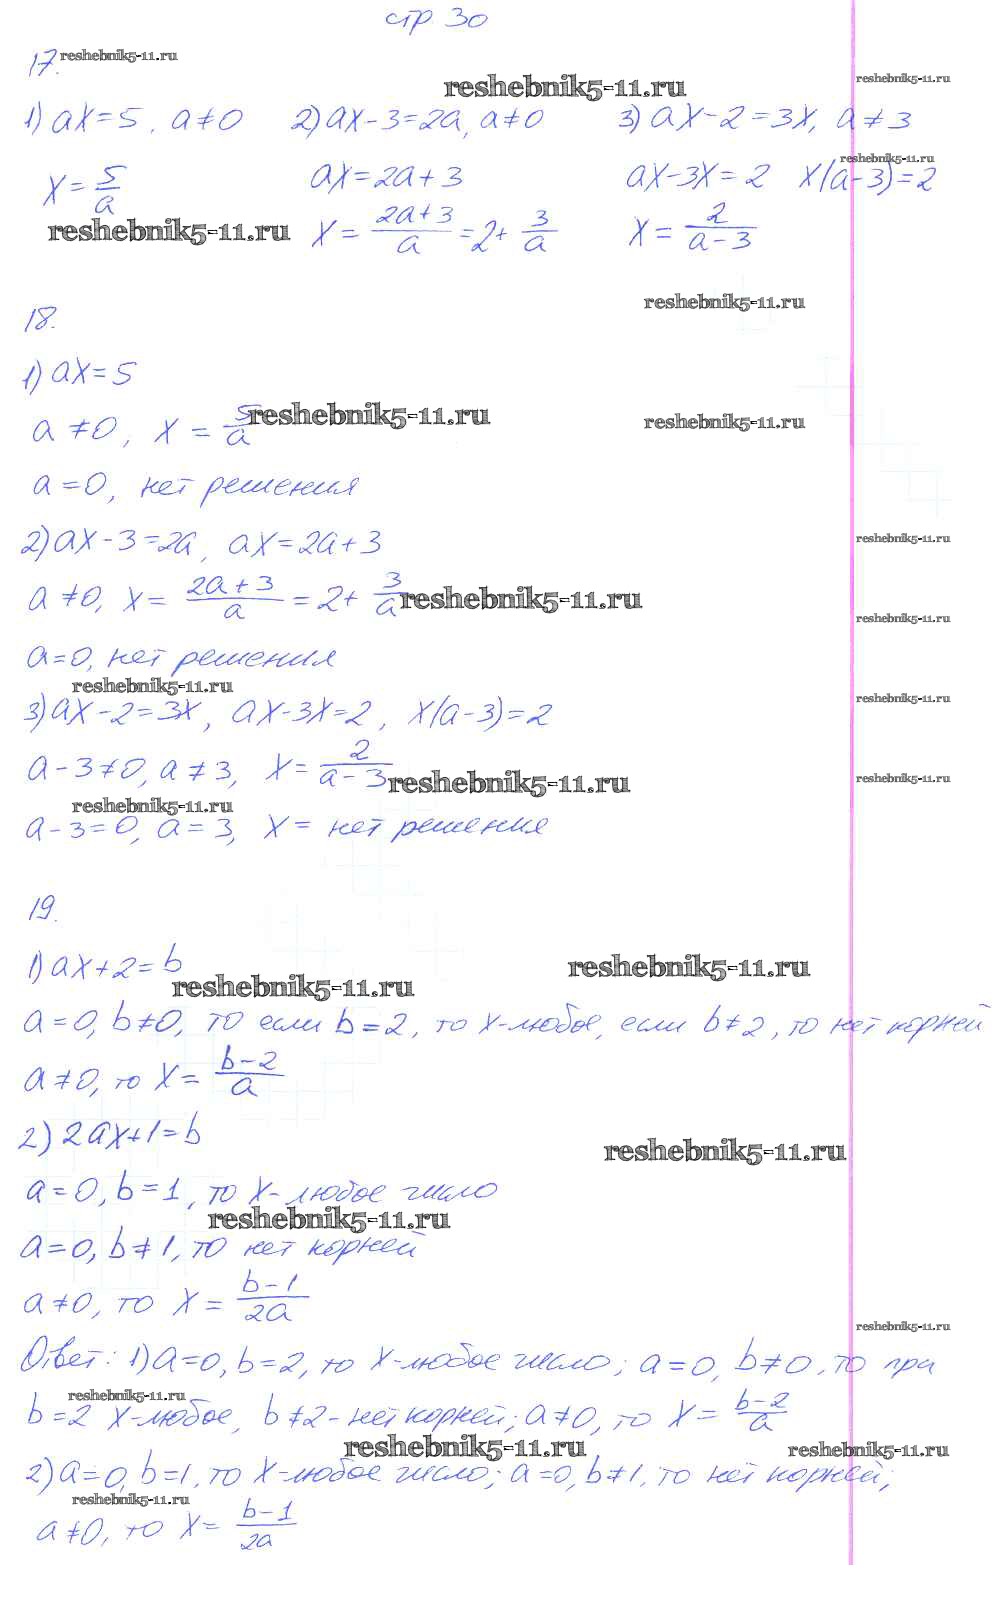 стр 30
17. reshebnik5-11.ru
reshebnik5-11.ru reshebnik5-11.ru
1) ax=5, a≠0 2) ax-3=2a, a≠0 3) ax-2=3x, a≠3
reshebnik5-11.ru
x=5/a ax=2a+3 ax-3x=2 x(a-3)=2
reshebnik5-11.ru x=(2a+3)/a=2+3/a x=2/(a-3)
reshebnik5-11.ru
18.
1) ax=5
a≠0, x=5/a reshebnik5-11.ru reshebnik5-11.ru
a=0, нет решения
2) ax-3=2a, ax=2a+3 reshebnik5-11.ru
a≠0, x=(2a+3)/a=2+3/a reshebnik5-11.ru reshebnik5-11.ru
a=0, нет решения
reshebnik5-11.ru reshebnik5-11.ru
3) ax-2=3x, ax-3x=2, x(a-3)=2
a-3≠0, a≠3, x=2/(a-3) reshebnik5-11.ru reshebnik5-11.ru
reshebnik5-11.ru
a-3=0, a=3, x= нет решения
19.
1) ax+2=b reshebnik5-11.ru
reshebnik5-11.ru
a=0, b≠0, то если b=2, то x-любое, если b≠2, то нет корней
a≠0, то x=(b-2)/a
2) 2ax+1=b reshebnik5-11.ru
a=0, b=1, то x-любое число
reshebnik5-11.ru
a=0, b≠1, то нет корней
a≠0, то x=(b-1)/2a
reshebnik5-11.ru
Ответ: 1) a=0, b=2, то x-любое число; a=0, b≠0, то при
reshebnik5-11.ru
b=2 x-любое, b≠2-нет корней; a≠0, то x=(b-2)/a
reshebnik5-11.ru reshebnik5-11.ru
2) a=0, b=1, то x-любое число; a=0, b≠1, то нет корней;
reshebnik5-11.ru
a≠0, то x=(b-1)/2a